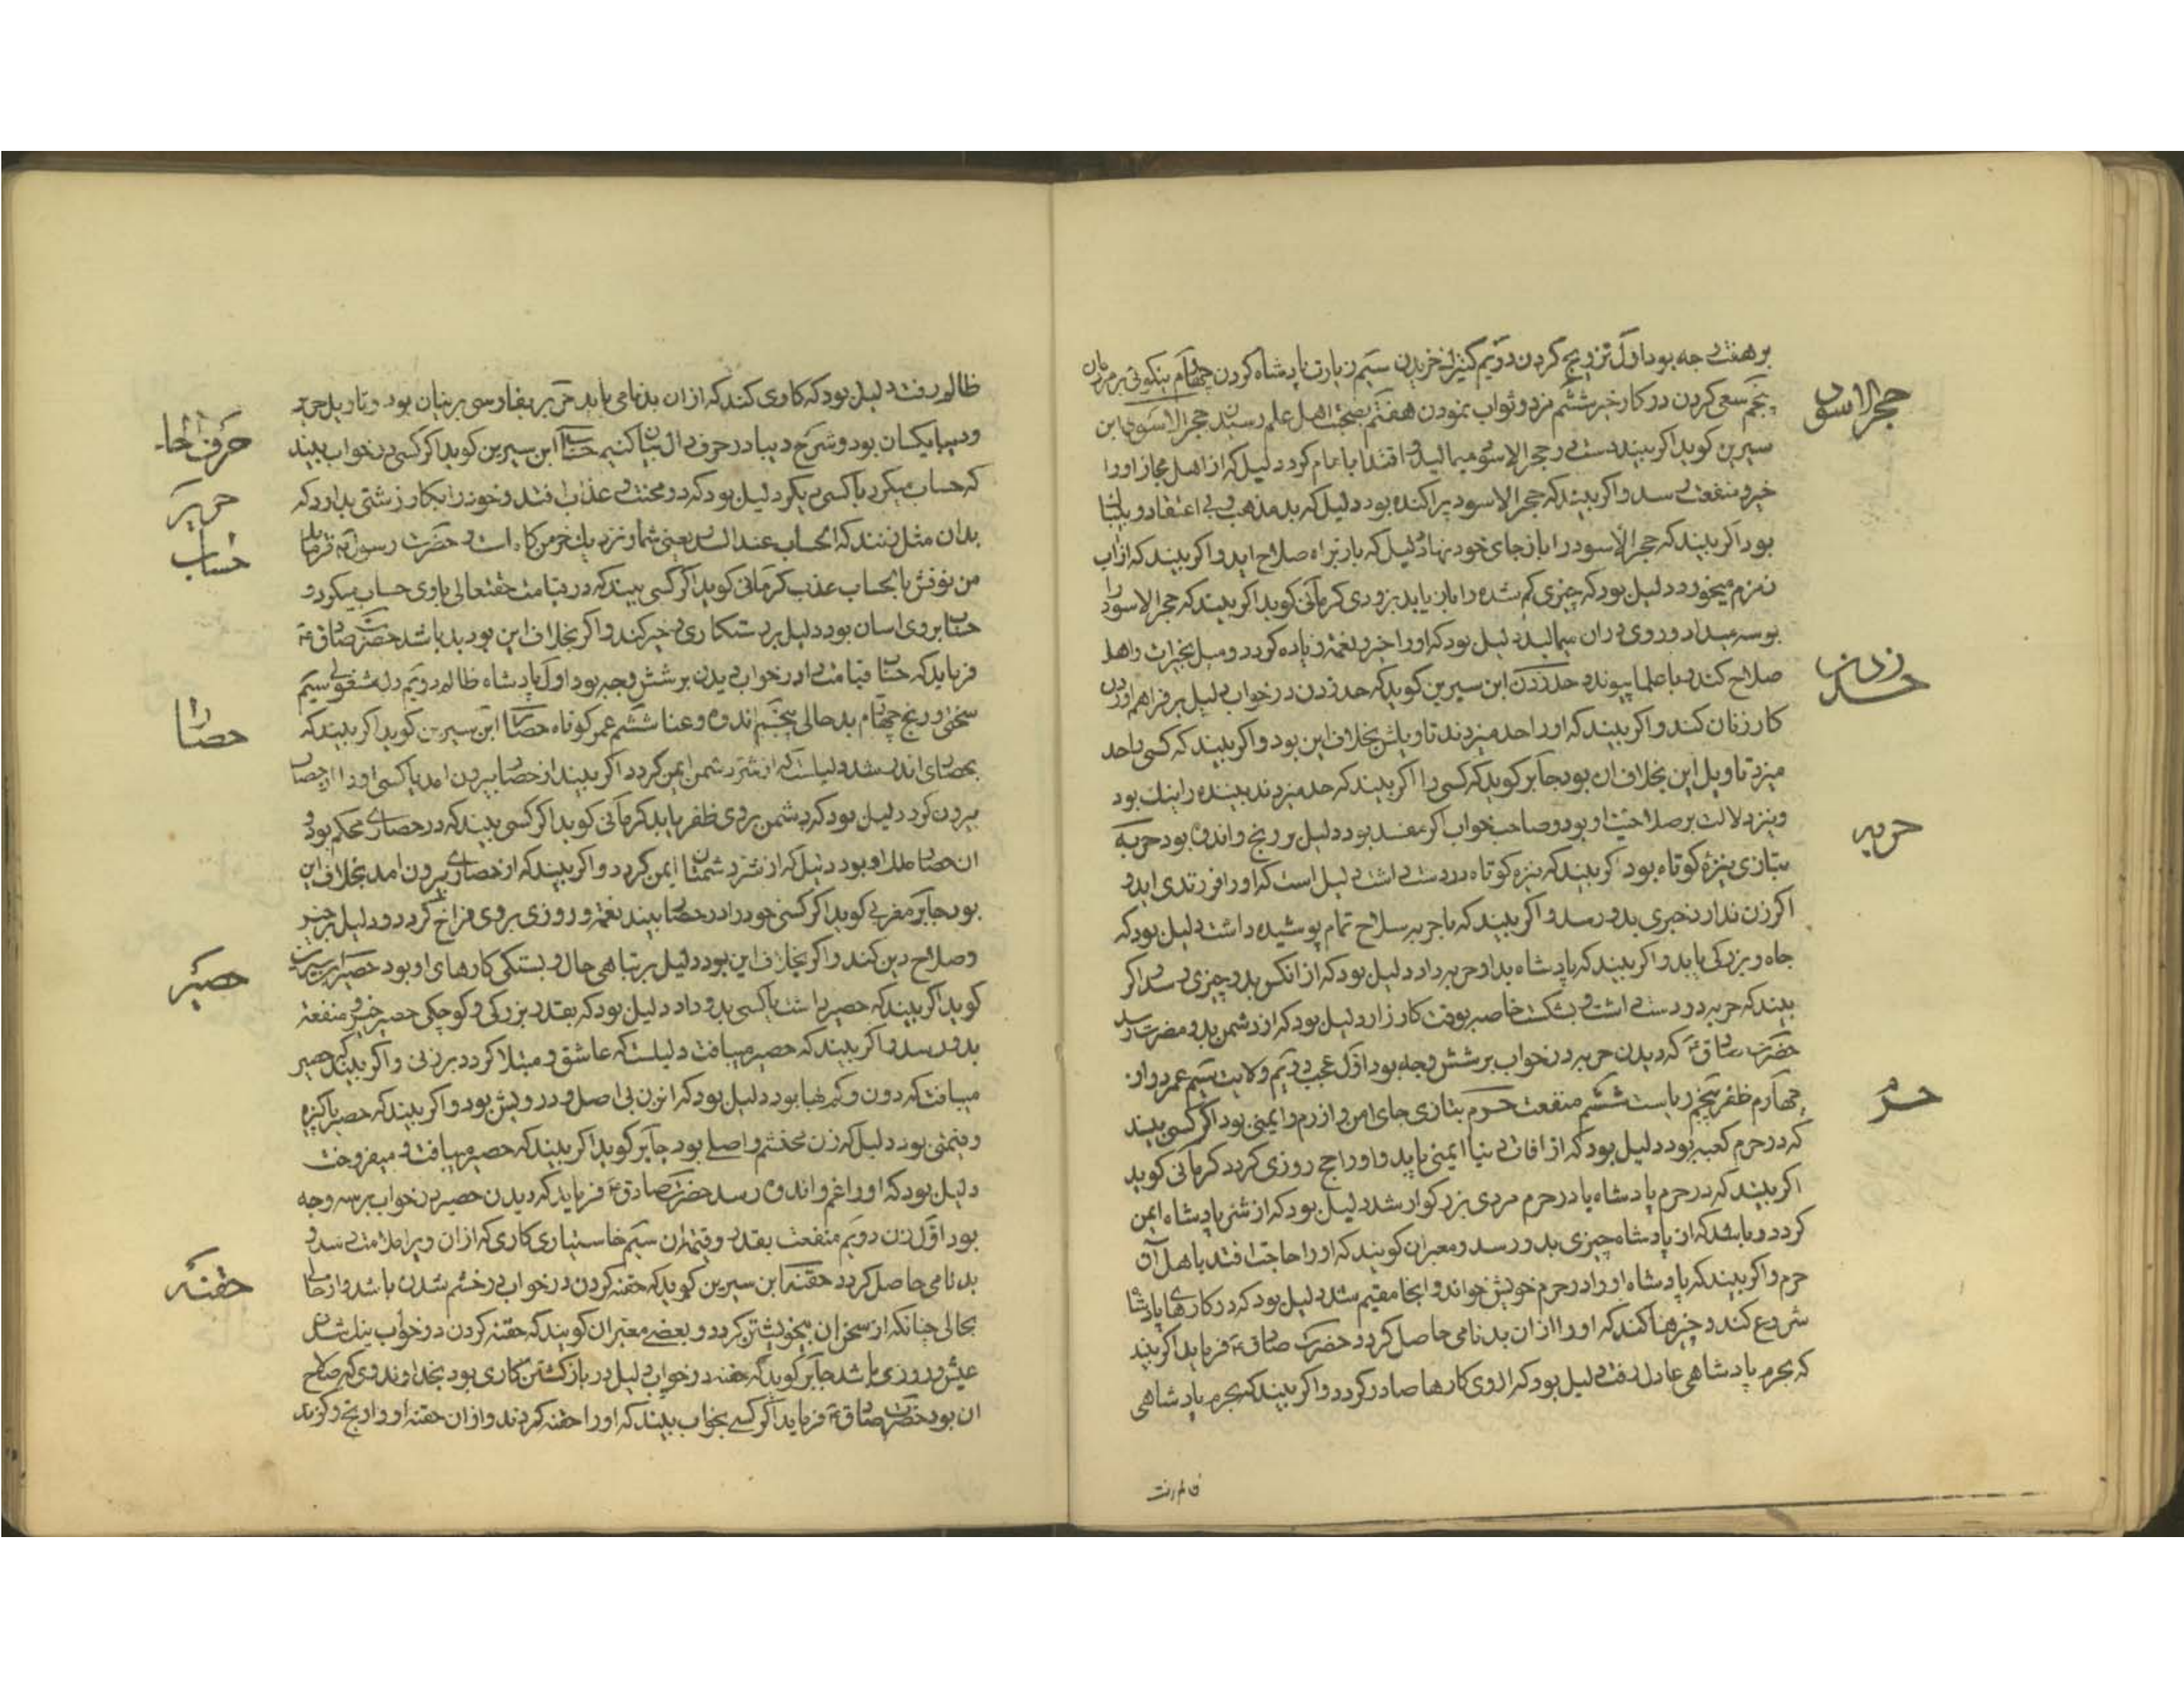 بر هفت وجه بود اول تزویج کردن دویم کنیزک خریدن سیم زیارت پادشاه کردن چهارم نیکوئی بر مردمان
پنجم سعی کردن در کار خیر ششم مزد و ثواب نمودن هفتم بصحبت اهل علم رسیدن حجر الاسود ابن
سیرین کوید اکر بیند دست در حجر الاسود میمالید و اقتدا بامام کرد دلیل که از اهل حجاز او را
خیر و منفعت رسد و اکر بیند که حجر الاسود پراکنده بود دلیل که بد مذهب و بی اعتقاد و
بود اکر بیند که حجر الاسود را باز جای خود نهاد دلیل که باز براه صلاح اید و اکر بیند که از اب
زمزم میخورد دلیل بود که چیزی کم شده را باز یابد بزودی کرمانی کوید اکر بیند که حجر الاسود را
بوسه میداد و روی دران میمالید دلیل بود که او را خیر و نعمت زیاده کردد و میل بخیرات و اهل
صلاح کند و با علما پیوندد حد زدن ابن سیرین کوید که حد زدن در خواب دلیل بر فراهم اوردن
کار زنان کند و اکر بیند که او را حد میزدند تاویلش بخلاف این بود و اکر بیند که کسی را حد
میزد تاویل این بخلاف ان بود جابر کوید که کسی را اکر بیند که حد میزدند بیننده را نیک بود
و نیز دلالت بر صلاحیت او بود و صاحب خواب اکر مفسد بود دلیل بر رنج و اندوه بود حربه
بتازی نیزه کوتاه بود اکر بیند که نیزه کوتاه در دست داشت دلیل است که او را فرزندی اید و
اکر زن ندارد خیری بدو رسد و اکر بیند که با حربه سلاح تمام پوشیده داشت دلیل بود که
جاه و بزرکی یابد و اکر بیند که پادشاه بدو حربه داد دلیل بود که از انکس بدو چیزی رسد و اکر
بیند که حربه در دست داشت و بشکست خاصه بوقت کارزار دلیل بود که از دشمن بدو مضرت رسد
حضرت صادق ع که دیدن حربه در خواب بر شش وجه بود اول دویم ولایت سیم عمر دراز
چهارم ظفر پنجم ریاست ششم منفعت حرم بتازی جای امن و ازرم و ایمنی بود اکر کسی بیند
که در حرم کعبه بود دلیل بود که از افات دنیا ایمنی یابد و او را حج روزی کردد کرمانی کوید
اکر بیند که در حرم پادشاه یا در حرم مردی بزرکوار شد دلیل بود که از شر پادشاه ایمن
کردد و باشد که از پادشاه چیزی بدو رسد و معبران کویند که او را حاجت افتد باهل آن
حرم و اکر بیند که پادشاه او را در حرم خویش خواند و انجا مقیم شد دلیل بود که در کارهای پادشاه
شروع کند و چیزها کند که او را از ان بدنامی حاصل کردد حضرت صادق ع فرماید اکر بیند
که بحرم پادشاهی عادل رفت دلیل بود که از وی کارها صادر کردد و اکر بیند که بحرم پادشاهی
ظالم رفت
حجر الاسود
حد زدن
حربه
حرم
ظالم رفت دلیل بود که کاری کند که از ان بدنامی یابد حریر بفارسی پرنیان بود و تاویل حریر
و دیبا یکسان بود و شرح دیبا در حرف دال بیان کنیم حساب ابن سیرین کوید اکر کسی در خواب بیند
که حساب میکرد با کسی دیکر دلیل بود که در محنت و عذاب افتد و خود را بکار زشتی بدارد که
بدان مثل زنند که الحساب عند السدید یعنی شمار نزد خرمن کاه است و حضرت رسول فرماید
من نوقش بالحساب عذب کرمانی کوید اکر کسی بیند که در قیامت حقتعالی با وی حساب میکرد و
حساب بر وی اسان بود دلیل بر رستکاری و خیر کند و اکر بخلاف این بود بد باشد حضرت صادق ع
فرماید که حساب قیامت را در خواب دیدن بر شش وجه بود اول پادشاه ظالم دویم دل مشغولی سیم
سختی و رنج چهارم بد حالی پنجم اندوه و عنا ششم عمر کوتاه حصار ابن سیرین کوید اکر بیند که
بحصاری اندر شد دلیلست که از شر دشمن ایمن کردد اکر بیند از حصار بیرون امد یا کسی او را از حصار
بیرون کرد دلیل بود که دشمن بر وی ظفر یابد کرمانی کوید اکر کسی بیند که در حصاری محکم بود و
ان حصار ملک او بود دلیل که از شر دشمنان ایمن کردد و اکر بیند که از حصاری بیرون امد بخلاف این
بود جابر مغربی کوید اکر کسی خود را در حصار بیند نعمت و روزی بر وی فراخ کردد و دلیل بر خیر
و صلاح دین کند و اکر بخلاف این بود دلیل بر تباهی حال و بستکی کارهای او بود حصیر ابن سیرین
کوید اکر بیند که حصیر داشت یا کسی بدو داد دلیل بود که بقدر بزرکی و کوچکی حصیر خیر و منفعت
بدو رسد و اکر بیند که حصیر میبافت دلیلست که عاشق و مبتلا کردد بر زنی و اکر بیند که حصیر
میبافت که دون و کم بها بود دلیل بود که ان زن بی اصل و درویش بود و اکر بیند که حصیر پاکیزه
و قیمتی بود دلیل که زن محتشم و اصلی بود جابر کوید اکر بیند که حصیر میبافت و میفروخت
دلیل بود که او را غم و اندوه رسد حضرت صادق ع فرماید که دیدن حصیر در خواب بر سه وجه
بود اول زن دویم منفعت بقدر و قیمت ان سیم خاستاری کاری که از ان ویرا ملامت رسد و
بدنامی حاصل کردد حقنه ابن سیرین کوید که حقنه کردن در خواب در خشم شدن باشد و از حالی
بحالی چنانکه از سخن ان بخویشتن کردد و بعضی معبران کویند که حقنه کردن در خواب نیک شدن
عیش و روزی باشد جابر کوید که حقنه در خواب دلیل در باز کشتن کاری بود بخداوند وی که صلاح
ان بود حضرت صادق ع فرماید اکر کسی بخواب بیند که او را حقنه کردند و از ان حقنه او را رنج و کزند
حرف الحاء
حریر
حساب
حصار
حصیر
حقنه